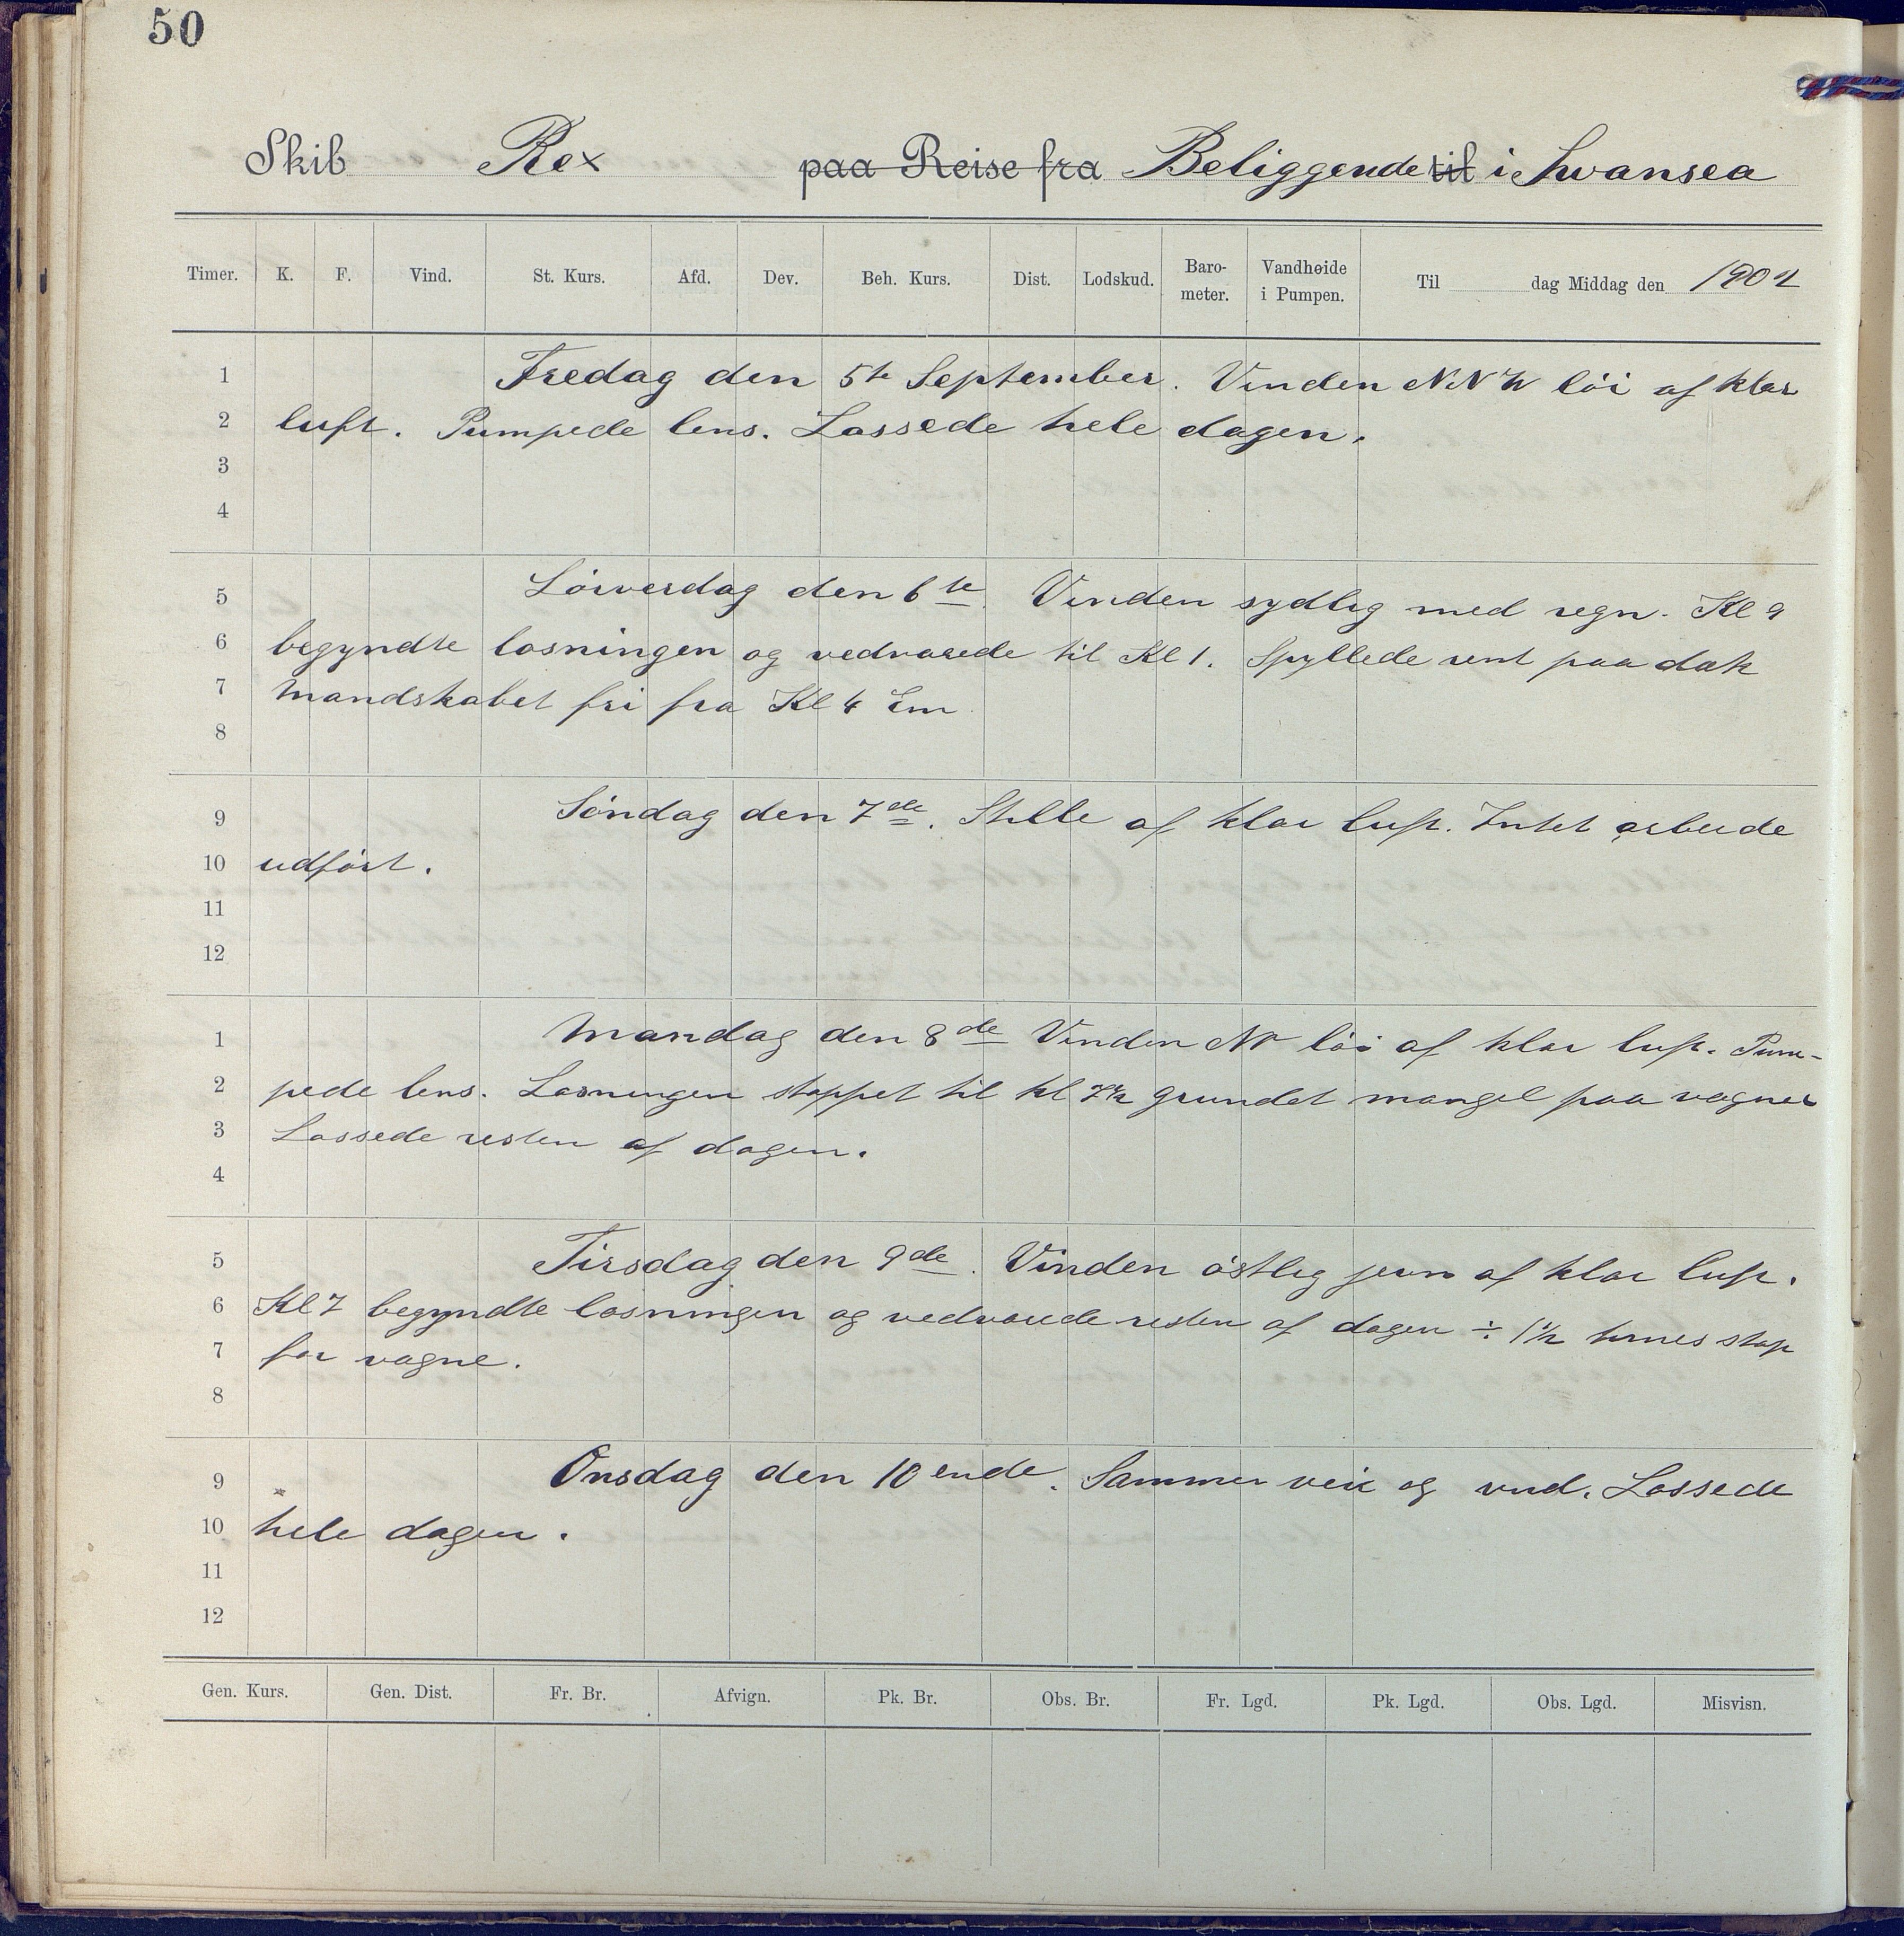 50
Skib Rex paa Reise fra Beliggende til i Swansea
Timer. K. F. Vind. St. Kurs. Afd. Dev. Beh. Kurs. Dist. Lodskud. Baro-meter. Vandhøide i Pumpen. Til dag Middag den 1902
1 Fredag den 5te September. Vinden NNW löi af klar
2 luft. Pumpede lens. Lossede hele dagen.
3
4
5 Lörverdag den 6te. Vinden sydlig med regn. Kl 9
6 begyndte losningen og vedvarede til Kl 1. Spyllede rent paa dæk
7 Mandskabet fri fra Kl 4 Em
8
9 Söndag den 7de. Stille af klar luft. Intet arbeide
10 udfört.
11
12
1 Mandag den 8de Vinden NV löi af klar luft. Pum-
2 pede lens. Losningen stoppet til kl 7½ grundet mangel paa vagner
3 Lossede resten af dagen.
4
5 Tirsdag den 9de. Vinden östlig jevn af klar luft.
6 Kl 7 begyndte losningen og vedvarede resten af dagen ÷ 1½ times stop
7 for vagne.
8
9 Onsdag den 10ende. Sammer veir og vind. Lossede
10 hele dagen.
11
12
Gen. Kurs. Gen. Dist. Fr. Br. Afvign. Pk. Br. Obs. Br. Fr. Lgd. Pk. Lgd. Obs. Lgd. Misvisn.